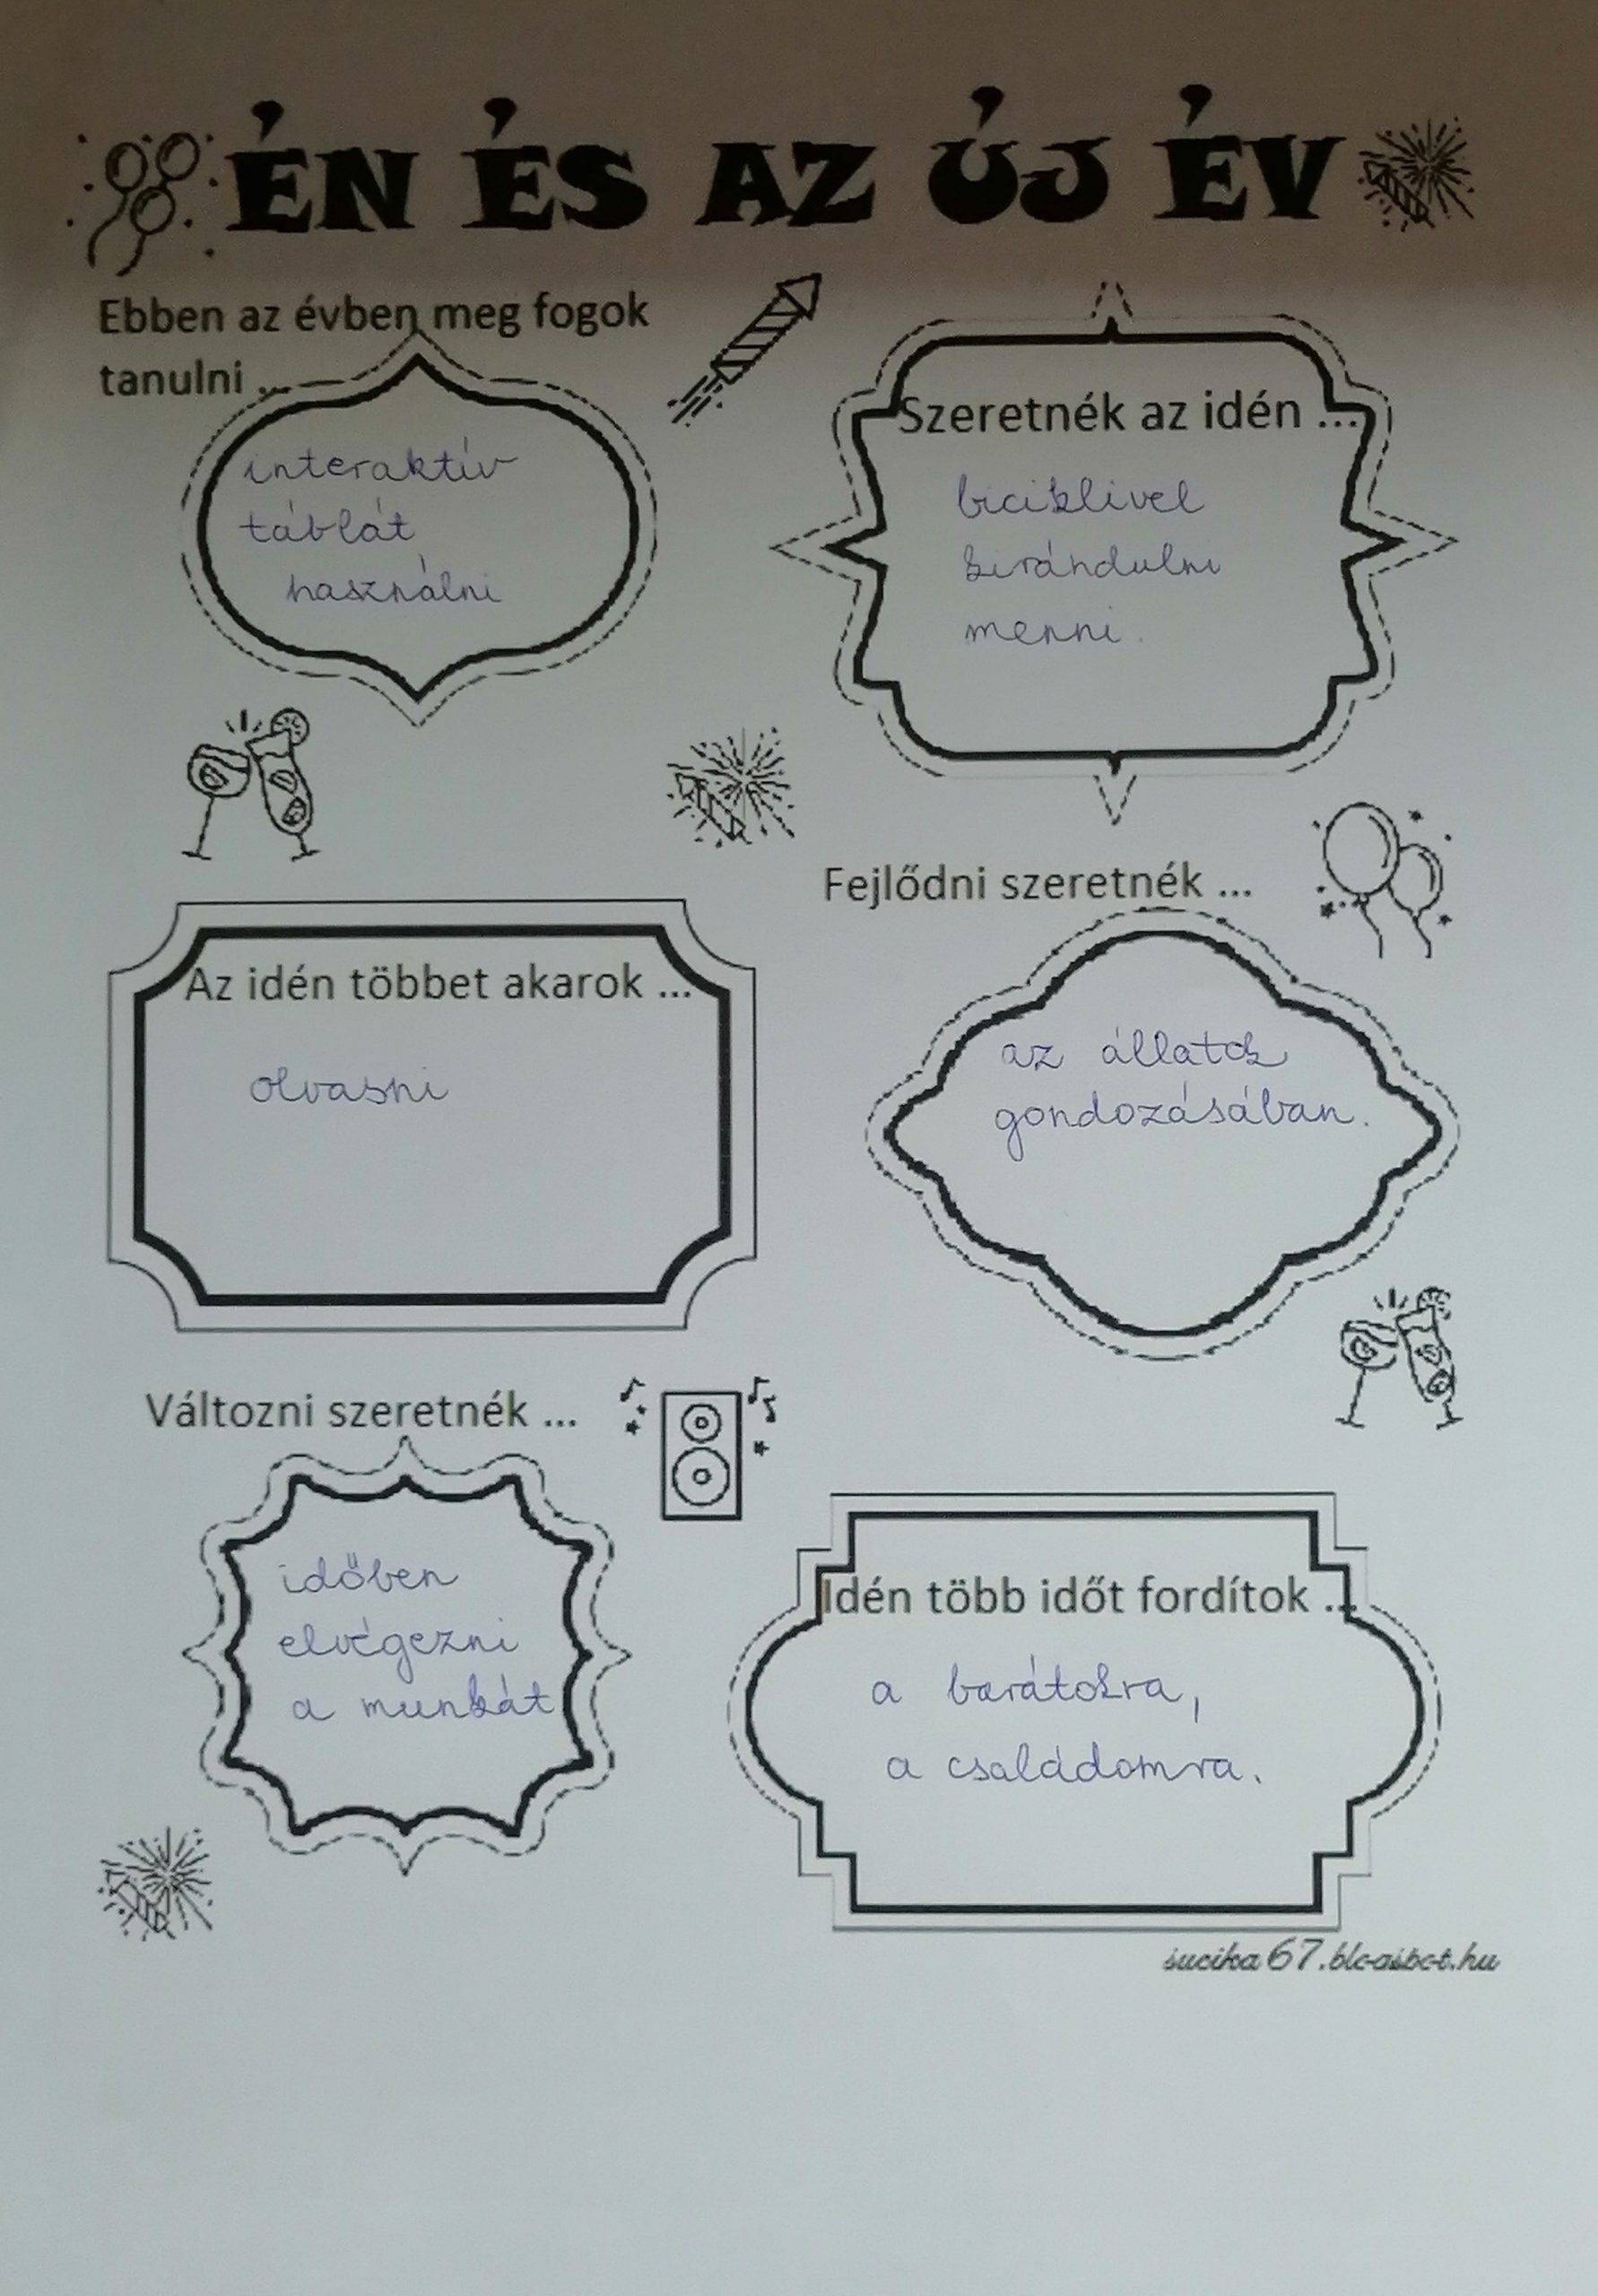 ÉN ÉS AZ ÚJ ÉV
Ebben az évben meg fogok
tanulni ...
interaktív
táblát
használni
Szeretnék az idén ...
biciklivel
kirándulni
menni.
Az idén többet akarok ...
olvasni
Fejlődni szeretnék ...
az állatok
gondozásában.
Változni szeretnék ...
időben
elvégezni
a munkát
Idén több időt fordítok ...
a barátokra,
a családomra.
sucika67.blogspot.hu